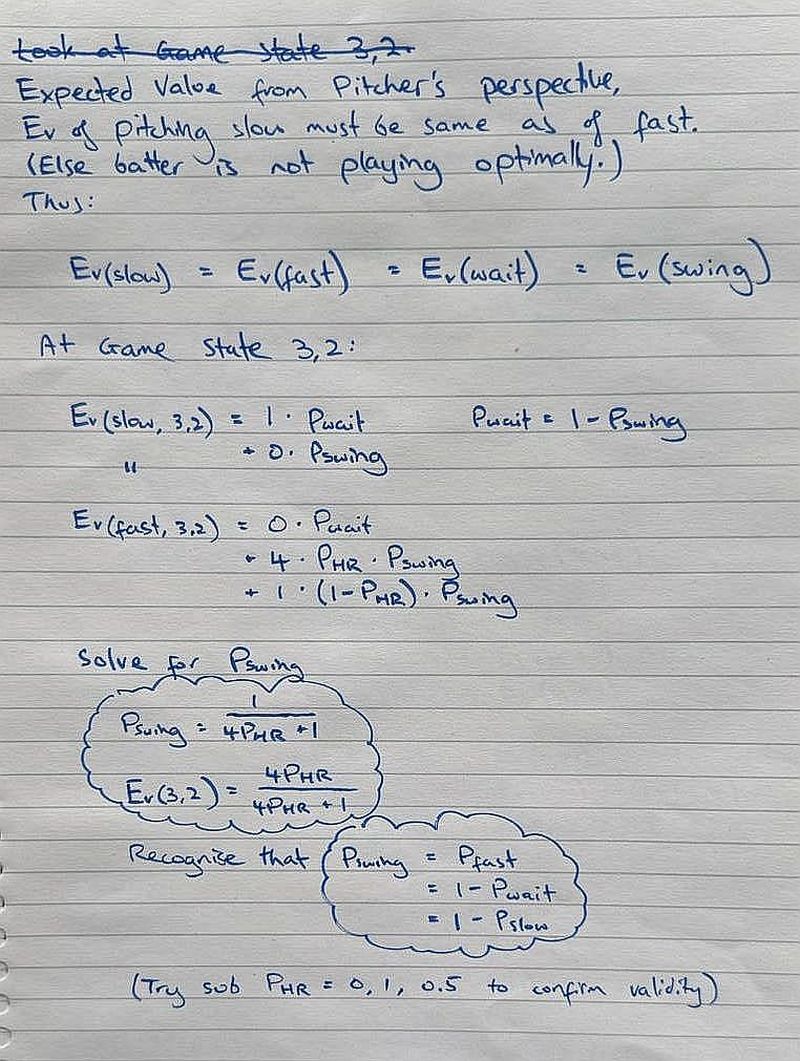 Look at Game State 3,2.
Expected Value from Pitcher's perspective,
Ev of pitching slow must be same as of fast.
(Else batter is not playing optimally.)
Thus:
Ev(slow) = Ev(fast) = Ev(wait) = Ev(swing)
At Game State 3,2:
Ev(slow, 3,2) = 1 · Pwait Pwait = 1 - Pswing
" + 0 · Pswing
Ev(fast, 3,2) = 0 · Pwait
+ 4 · PHR · Pswing
+ 1 · (1-PHR) · Pswing
Solve for Pswing
Pswing = 1 / 4PHR + 1
Ev(3,2) = 4PHR / 4PHR + 1
Recognise that Pswing = Pfast
= 1 - Pwait
= 1 - Pslow
(Try sub PHR = 0, 1, 0.5 to confirm validity)